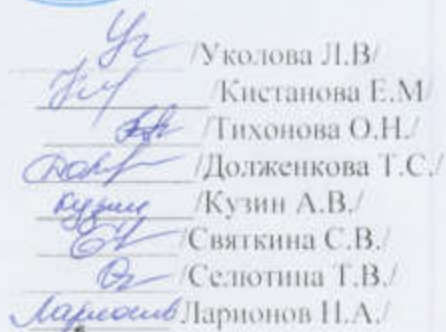 /Уколова Л.В/
/Кистанова Е.М
/Тихонова О.Н./
/Долженкова Т.С./
/Кузин А.В./
/Святкина С.В./
/Селютина Т.В./
Ларионов Н.А./